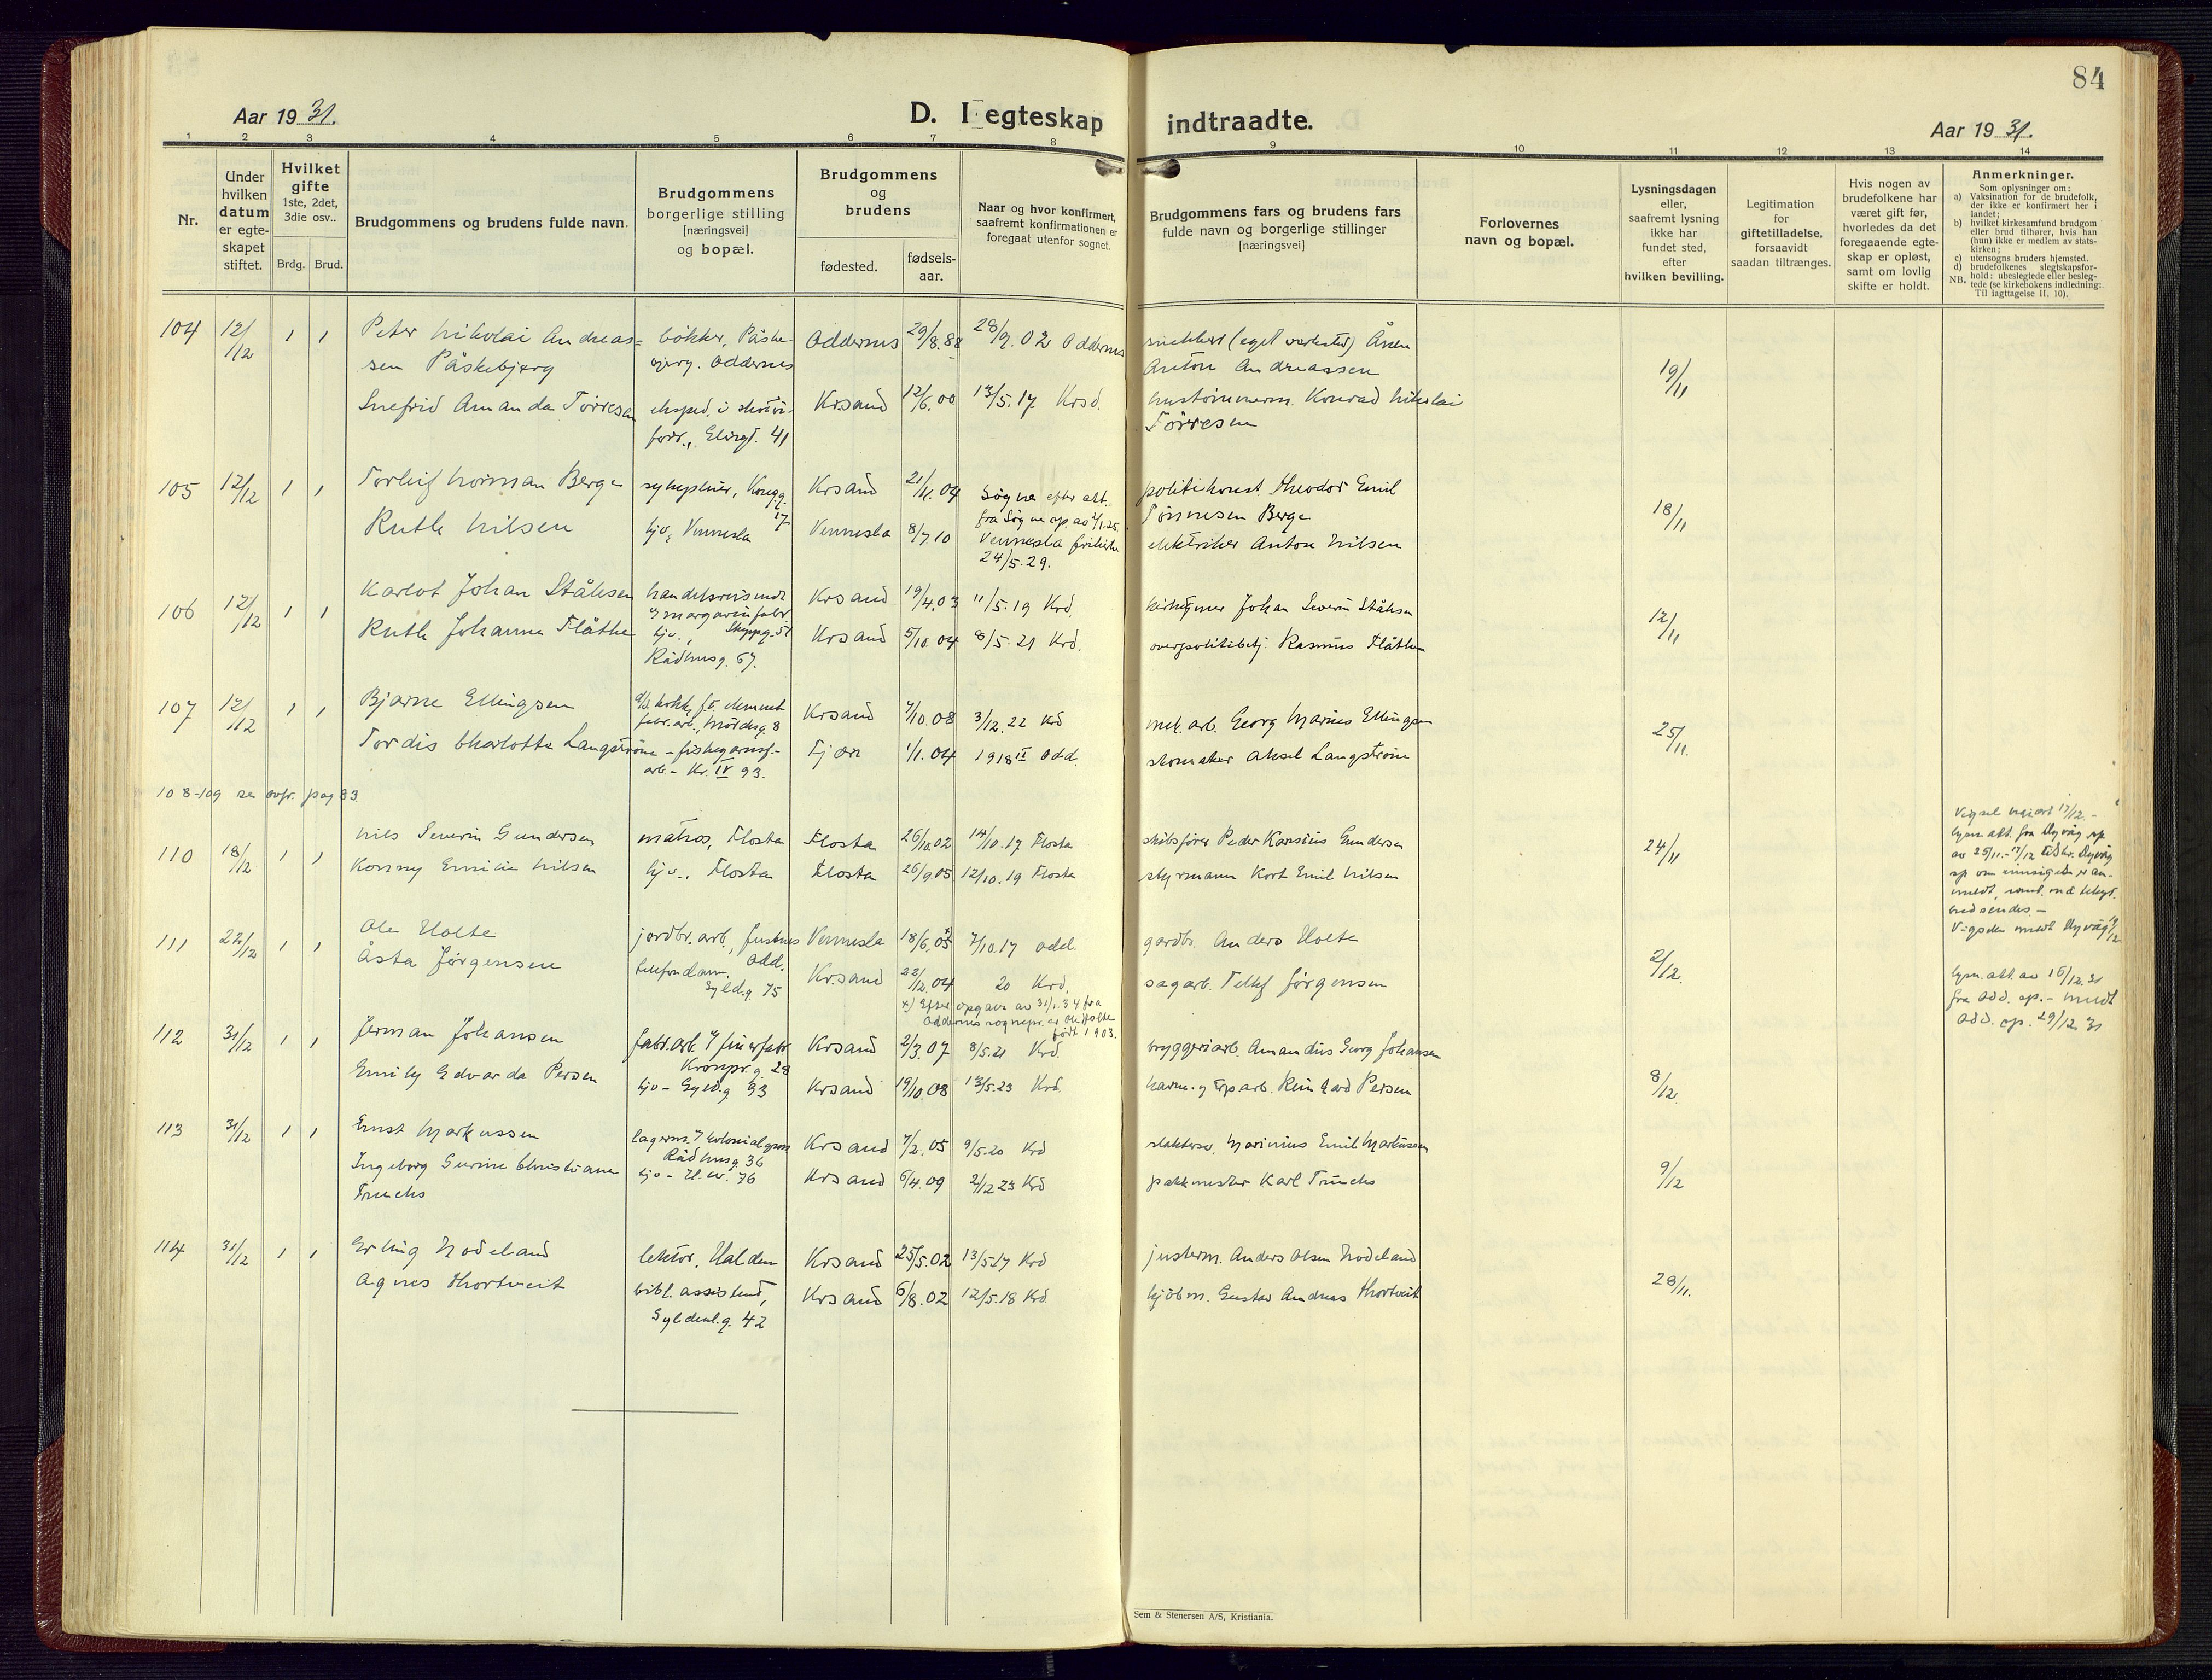 84
Aar 19 31.
D. I egteskap indtraadte.
Aar 19 31.
1 2 3 4 5 6 7 8 9 10 11 12 13 14
Nr.
Under hvilken datum er egteskapet stiftet.
Hvilket gifte 1ste, 2det, 3die osv..
Brdg. Brud.
Brudgommens og brudens fulde navn.
Brudgommens borgerlige stilling [næringsvei] og bopæl.
Brudgommens og brudens
fødested.
fødselsaar.
Naar og hvor konfirmert, saafremt konfirmationen er foregaat utenfor sognet.
Brudgommens fars og brudens fars fulde navn og borgerlige stillinger [næringsvei]
Forlovernes navn og bopæl.
Lysningsdagen eller, saafremt lysning ikke har fundet sted, efter hvilken bevilling.
Legitimation for giftetilladelse, forsaavidt saadan tiltrænges.
Hvis nogen av brudefolkene har været gift før, hvorledes da det foregaaende egteskap er opløst, samt om lovlig skifte er holdt.
Anmerkninger.
Som oplysninger om:
a) Vaksination for de brudefolk, der ikke er konfirmert her i landet;
b) hvilket kirkesamfund brudgom eller brud tilhører, hvis han (hun) ikke er medlem av statskirken;
c) utensogns bruders hjemsted.
d) brudefolkenes slegtskapsforhold: ubeslegtede eller beslegtede (se kirkebokens indledning: Til iagttagelse II. 10).
NB.
104 12/12 1 1 Peter Nikolai Andreas= bøkker, Påske- Oddernes 29/8.88 28/9.02 Oddernes snekker (eget verksted) Ånen
sen Påskebjerg bjerg. Oddernes Anton Andreassen 19/11
Snefrid Amanda Tørresen eksped. i skotøi- Kr.sand 12/6.00 13/5.17 Krsd. hustømmerm. Konrad Nikolai
forr., Elvegt. 41 Tørresen
105 12/12 1 1 Torleif Norman Berge sykepleier, Kongg. 17 Krsand 21/11.04 Søgne efter att. politikonst. Theodor Emil
fra Søgne sp. av 2/1.25. Tønnesen Berge 18/11
Ruth Nilsen hjv, Vennesla Vennesla 8/7.10 Vennesla frikirke elektriker Anton Nilsen
24/5.29.
106 12/12 1 1 Karlot Johan Ståhsen handelsreisende Krsand 19/4.03 11/5.19 Krd. kirketjener Johan Severin Ståhsen 12/11
Ruth Johanne Flåthe hjv., Krsand 5/10.04 8/5.21 Krd. overpolitibetj. Rasmus Flåthe
Rådhusg. 67.
107 12/12 1 1 Bjarne Ellingsen Krsand 7/10.08 3/12.22 Krd mek. arb. Georg Marius Ellingsen 25/11.
Tordis Charlotte Langstrøm – fiskegarnsf.- Fjære 1/1.04 1918 II Odd. skomaker Aksel Langstrøm
arb – Kr. IV 93.
108-109 se ovfr. pag 83
110 18/12 1 1 Nils Severin Gundersen matros, Flosta Flosta 26/10.02 14/10.17 Flosta skibsfører Peder Karsius Gundersen 24/11
Konny Emilie Nilsen hjv., Flosta Flosta 26/9.05 12/10.19 Flosta styrmann Kort Emil Nilsen
Vigsel
lysn. att. fra Dyvåg sp.
av 25/11.–
Vigselen meldt Dyvåg
111 22/12 1 1 Ole Holte jordbr. arb., Justnes Odd. Vennesla 18/6.05 7/10.17 Odd. gardbr. Anders Holte 2/12.
Åsta Jørgensen telefondame, Gyld.g. 75 Kr.sand 22/12.04 20 Krd. sagarb. Tellef Jørgensen
x) Efter opgave av 31/1.34 fra
Oddernes sognepr. er Ole Holte
født 1903.
lysn. att. av 16/12.31
fra Odd. sp. – meldt
Odd. sp. 29/12 31
112 31/12 1 1 Jerman Johansen fabr.arb. v/ finerfabr. Krsand 2/3.07 8/5.21 Krd. bryggeriarb. Amandus Georg Johansen
Kronpr.g. 28
Emily Edvarda Persen hjv – Gyld.g 33 Krsand 19/10.08 13/5.23 Krd. havne- og erp arb. Reinhard Persen 8/12.
113 31/12 1 1 Ernst Markussen lagerm. v/ kolonialgross Krsand 7/2.05 9/5.20 Krd slaktersv. Marinius Emil Markussen
Rådhusg. 36
Ingeborg Gurine Christiane hjv – H.W. 76 Krsand 6/4.09 2/12 23 Krd pakkmester Karl Truchs 9/12
Truchs
114 31/12 1 1 Erling Nodeland lektor, Halden Krsand 25/5.02 13/5.17 Krd justerm. Anders Olsen Nodeland
Agnes Thortveit bibl. assistent, Krsand 6/8.02 12/5.18 Krd kjøbm. Gustav Andreas Thortveit 28/11.
Gyldenl.g. 42
Sem & Stenersen A/S, Kristiania.